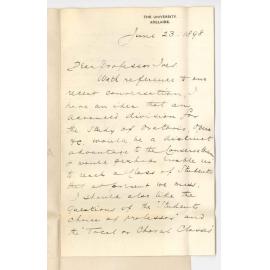 THE UNIVERSITY
ADELAIDE.
June 23. 1898
Dear Professor Ives
With reference to our
recent conversation, I
have an idea that an
advanced division for
the study of Oratorio, Opera
&c would be a distinct
advantage to the Conservatorium
& would perhaps enable us
to reach a class of Students
that at present we miss.
I should also like the
questions of the "Students
choice of professor" and
the "Vocal or Choral Classes"